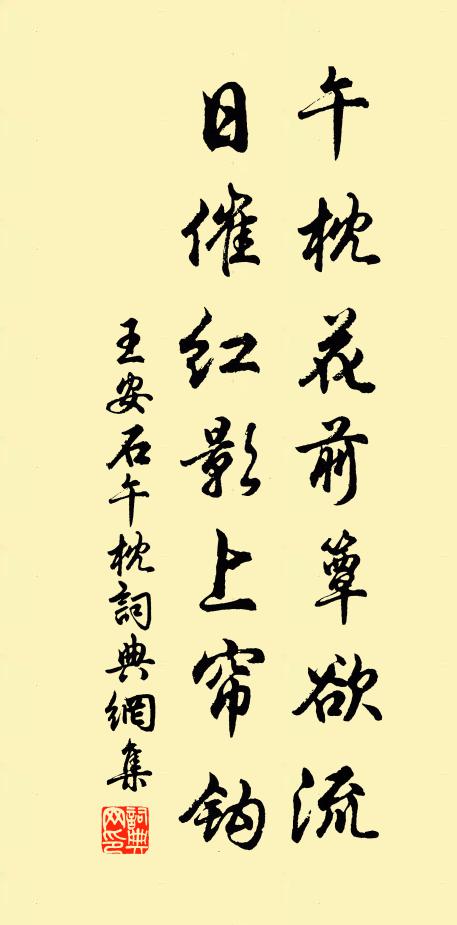 午枕花前簟欲流
日催红影上帘钩
王安石午枕詞典網集
詞典网印